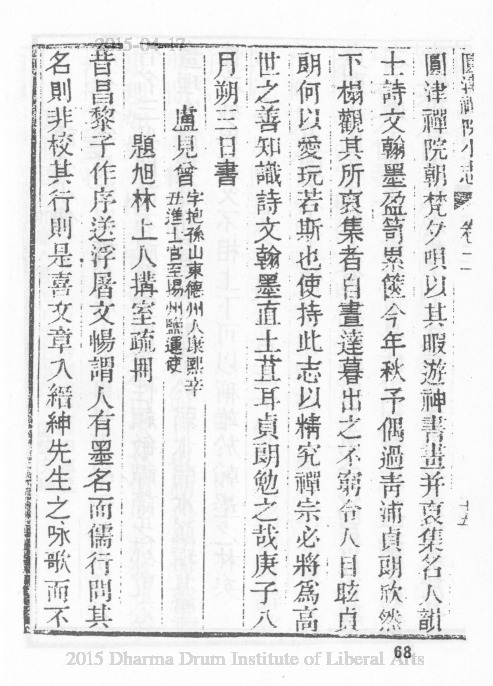 2015-04-17
圓津禪院小志 卷二 十五
圓津禪院朝梵夕唄以其暇遊神書畫并裒集名人韻
士詩文翰墨盈笥累篋今年秋予偶過青浦貞朗欣然
下榻觀其所裒集者自晝達暮出之不窮令人目眩貞
朗何以愛玩若斯也使持此志以精究禪宗必將為高
世之善知識詩文翰墨直土苴耳貞朗勉之哉庚子八
月朔三日書
盧見曾 字抱孫山東德州人康熙辛
丑進士官至揚州鹽運使
題旭林上人搆室疏冊
昔昌黎子作序送浮屠文暢謂人有墨名而儒行問其
名則非校其行則是喜文章入縉紳先生之咏歌而不
68
2015 Dharma Drum Institute of Liberal Arts